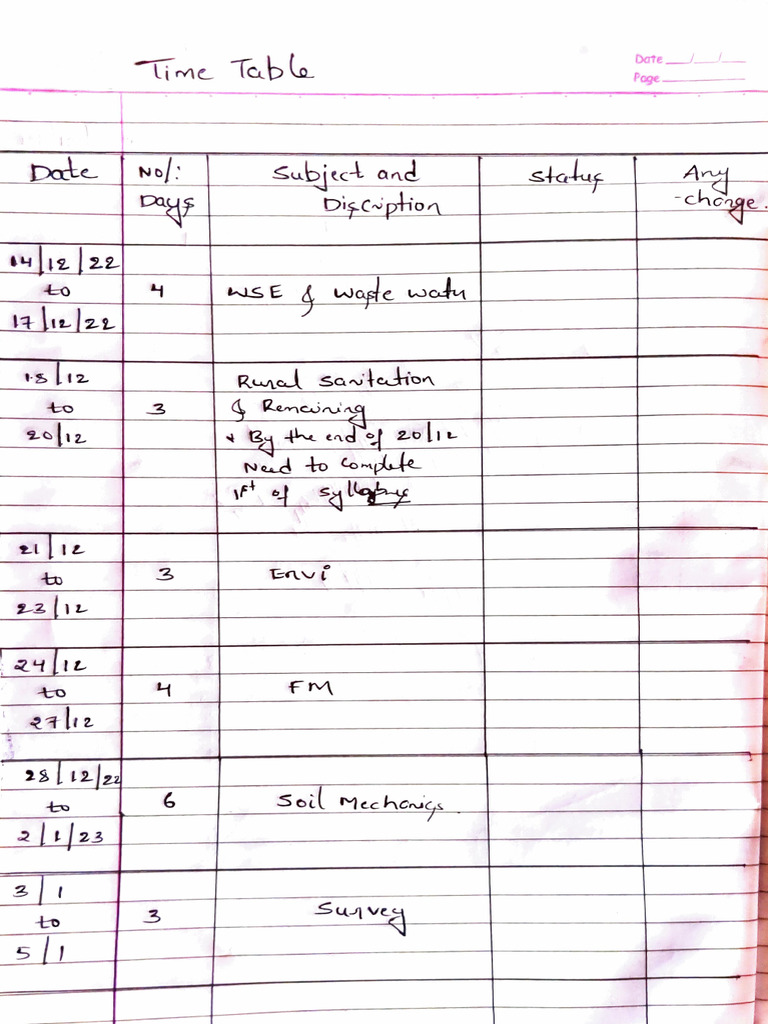 Time Table
Date __/__/__
Page ______
Date No/: Days Subject and Discription Status Any change.
14/12/22 to 17/12/22 4 WSE & Waste Water
18/12 to 20/12 3 Rural Sanitation
& Remaining
* By the end of 20/12
Need to complete
1st of syllabus
21/12 to 23/12 3 Envi
24/12 to 27/12 4 FM
28/12/22 to 2/1/23 6 Soil Mechanics
3/1 to 5/1 3 Survey